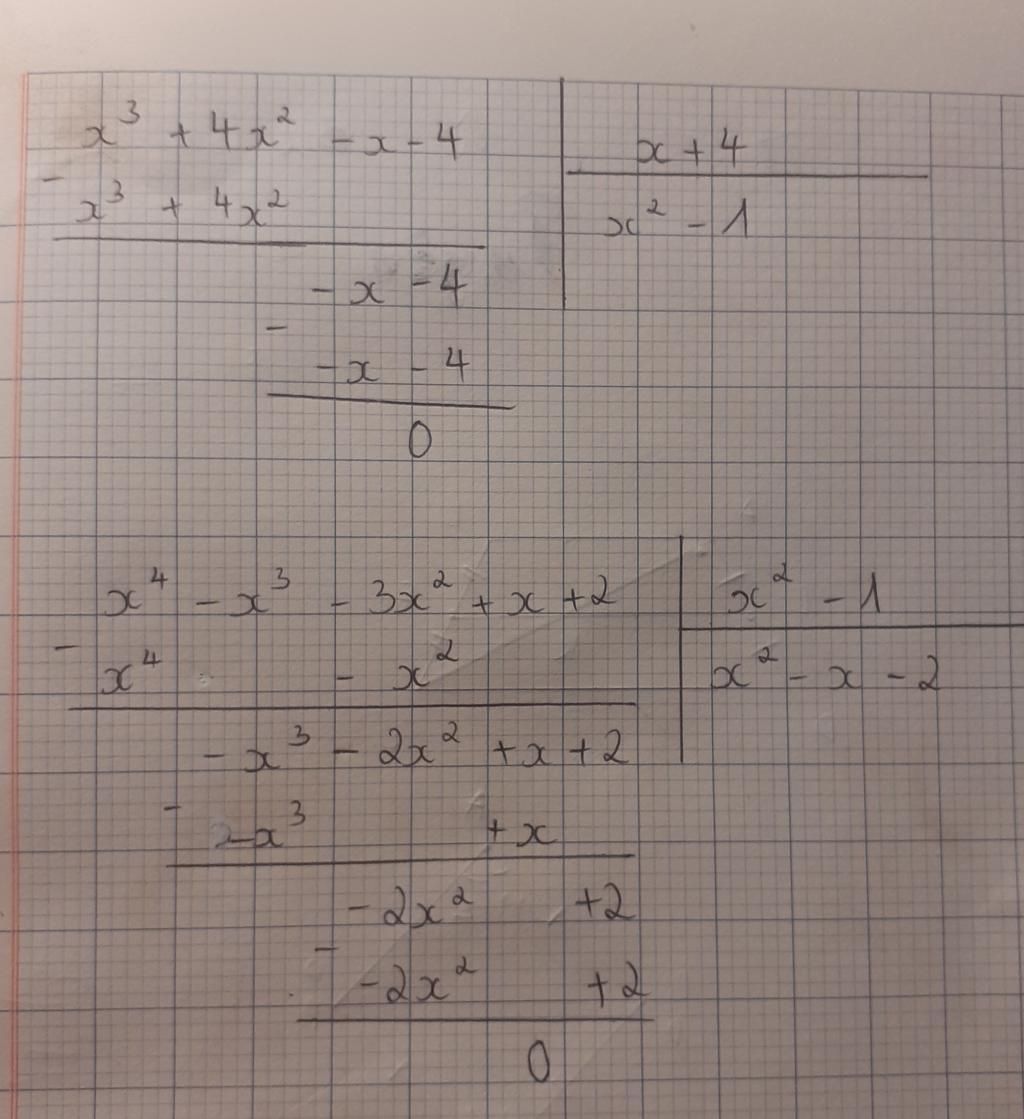 x³ + 4x² - x - 4 | x + 4
- x³ + 4x² | x² - 1
- x - 4
- - x - 4
0
x⁴ - x³ - 3x² + x + 2 | x² - 1
- x⁴ - x² | x² - x - 2
- x³ - 2x² + x + 2
- - x³ + x
- 2x² + 2
- - 2x² + 2
0